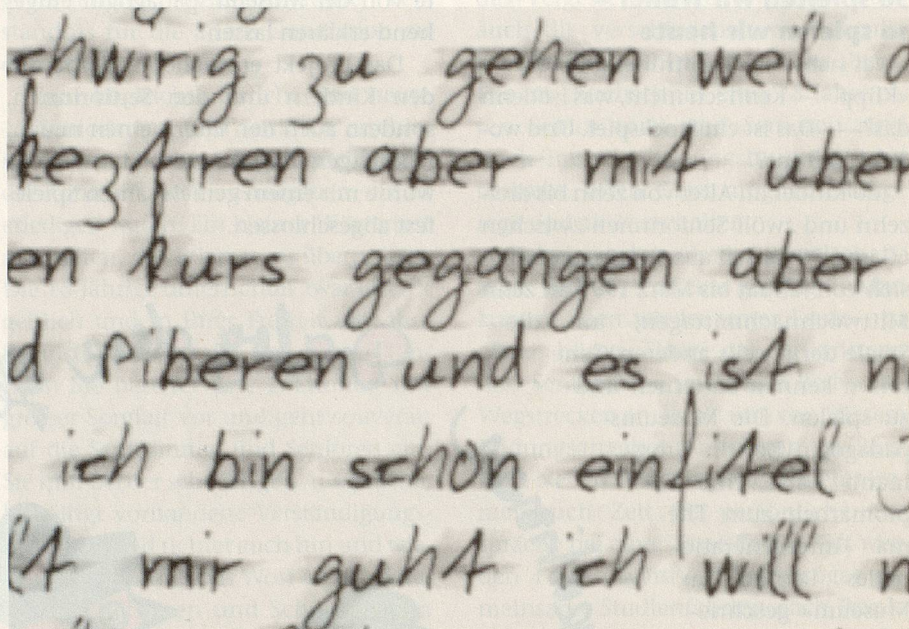 chwirig zu gehen weil
akezfiren aber mit uber
en kurs gegangen aber
d Piberen und es ist n
ich bin schon einfitel
mir guht ich will n